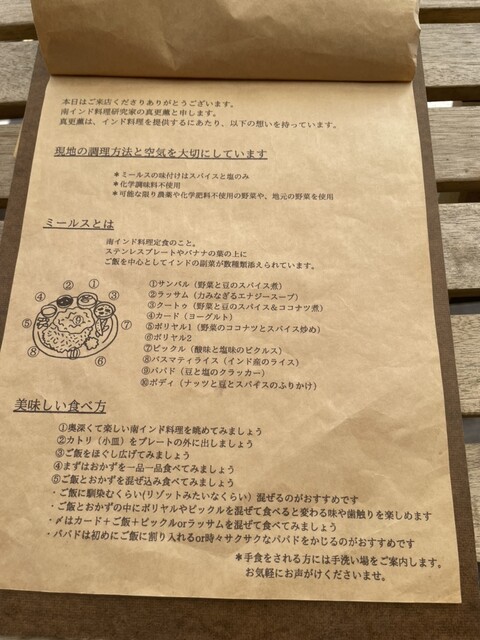 本日はご来店くださりありがとうございます。
南インド料理研究家の真更薫と申します。
真更薫は、インド料理を提供するにあたり、以下の想いを持っています。
現地の調理方法と空気を大切にしています
＊ミールスの味付けはスパイスと塩のみ
＊化学調味料不使用
＊可能な限り農薬や化学肥料不使用の野菜や、地元の野菜を使用
ミールスとは
南インド料理定食のこと。
ステンレスプレートやバナナの葉の上に
ご飯を中心としてインドの副菜が数種類添えられています。
①サンバル（野菜と豆のスパイス煮）
②ラッサム（力みなぎるエナジースープ）
③クートゥ（野菜と豆のスパイス＆ココナツ煮）
④カード（ヨーグルト）
⑤ポリヤル1（野菜のココナツとスパイス炒め）
⑥ポリヤル2
⑦ピックル（酸味と塩味のピクルス）
⑧バスマティライス（インド産のライス）
⑨パパド（豆と塩のクラッカー）
⑩ポディ（ナッツと豆とスパイスのふりかけ）
① ② ③ ④ ⑤ ⑦ ⑧ ⑩ ⑥
美味しい食べ方
①奥深くて楽しい南インド料理を眺めてみましょう
②カトリ（小皿）をプレートの外に出しましょう
③ご飯をほぐし広げてみましょう
④まずはおかずを一品一品食べてみましょう
⑤ご飯とおかずを混ぜ込み食べてみましょう
・ご飯に馴染むくらい(リゾットみたいなくらい）混ぜるのがおすすめです
・ご飯とおかずの中にポリヤルやピックルを混ぜて食べると変わる味や歯触りを楽しめます
・〆はカード＋ご飯＋ピックルorラッサムを混ぜて食べてみましょう
・パパドは初めにご飯に割り入れるor時々サクサクなパパドをかじるのがおすすめです
＊手食をされる方には手洗い場をご案内します。
お気軽にお声がけくださいませ。